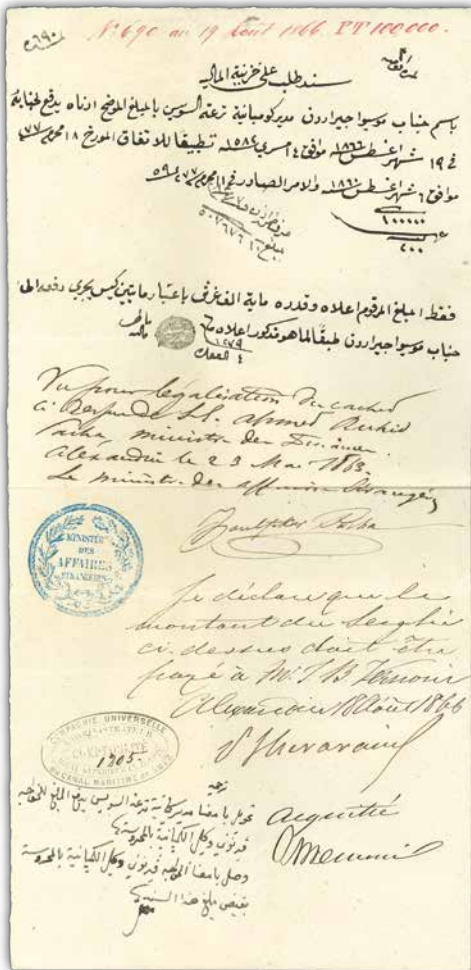 N° 690 au 19 Août 1866 PT 100,000.
٦٩٠
سند طلب على خزينة المالية
باسم جناب موسيو جيراردن مدير كومبانية ترعة السويس بالمبلغ الموضح ادناه يدفع لجنابه
في ١٩ شهر اغسطس ١٨٦٦ موافق ١٤ مسري ١٥٨٢ تطبيقا للاتفاق المورخ ١٨ محرم ٧٧
موافق ٦ شهر اغسطس ١٨٦٠ والامر الصادر في محرم ٧٧
١٠٠٠٠٠
٢٠٠
فقط المبلغ المرقوم اعلاه وقدره ماية الف غرش باعتبار مايتين كيس يجري دفعه الى
جناب موسيو جيراردن طبقا لما هو مذكور اعلاه
١٢٧٩
Vu pour légalisation du cachet
ci dessus de S.E. Ahmed Rachid
Pacha, ministre des Finances.
Alexandrie le 23 Mai 1863.
Le ministre des affaires Etrangères
Zoulfikar Pacha
MINISTÈRE
DES
AFFAIRES
ETRANGÈRES
Je déclare que le
montant du Serghi
ci-dessus doit être
payé à Mr J B
Alexandrie 18 Août 1866
COMPAGNIE UNIVERSELLE
COMPTABILITÉ
1305
DU CANAL MARITIME DE SUEZ
acquitté
ترجمة
تحويل بامضا مدير كمبانية ترعة السويس بدفع المبلغ للخواجه
وكيل الكمبانية بالمحروسة
وصل بامضا الخواجه وكيل الكمبانية بالمحروسة
بقبض مبلغ هذا السند